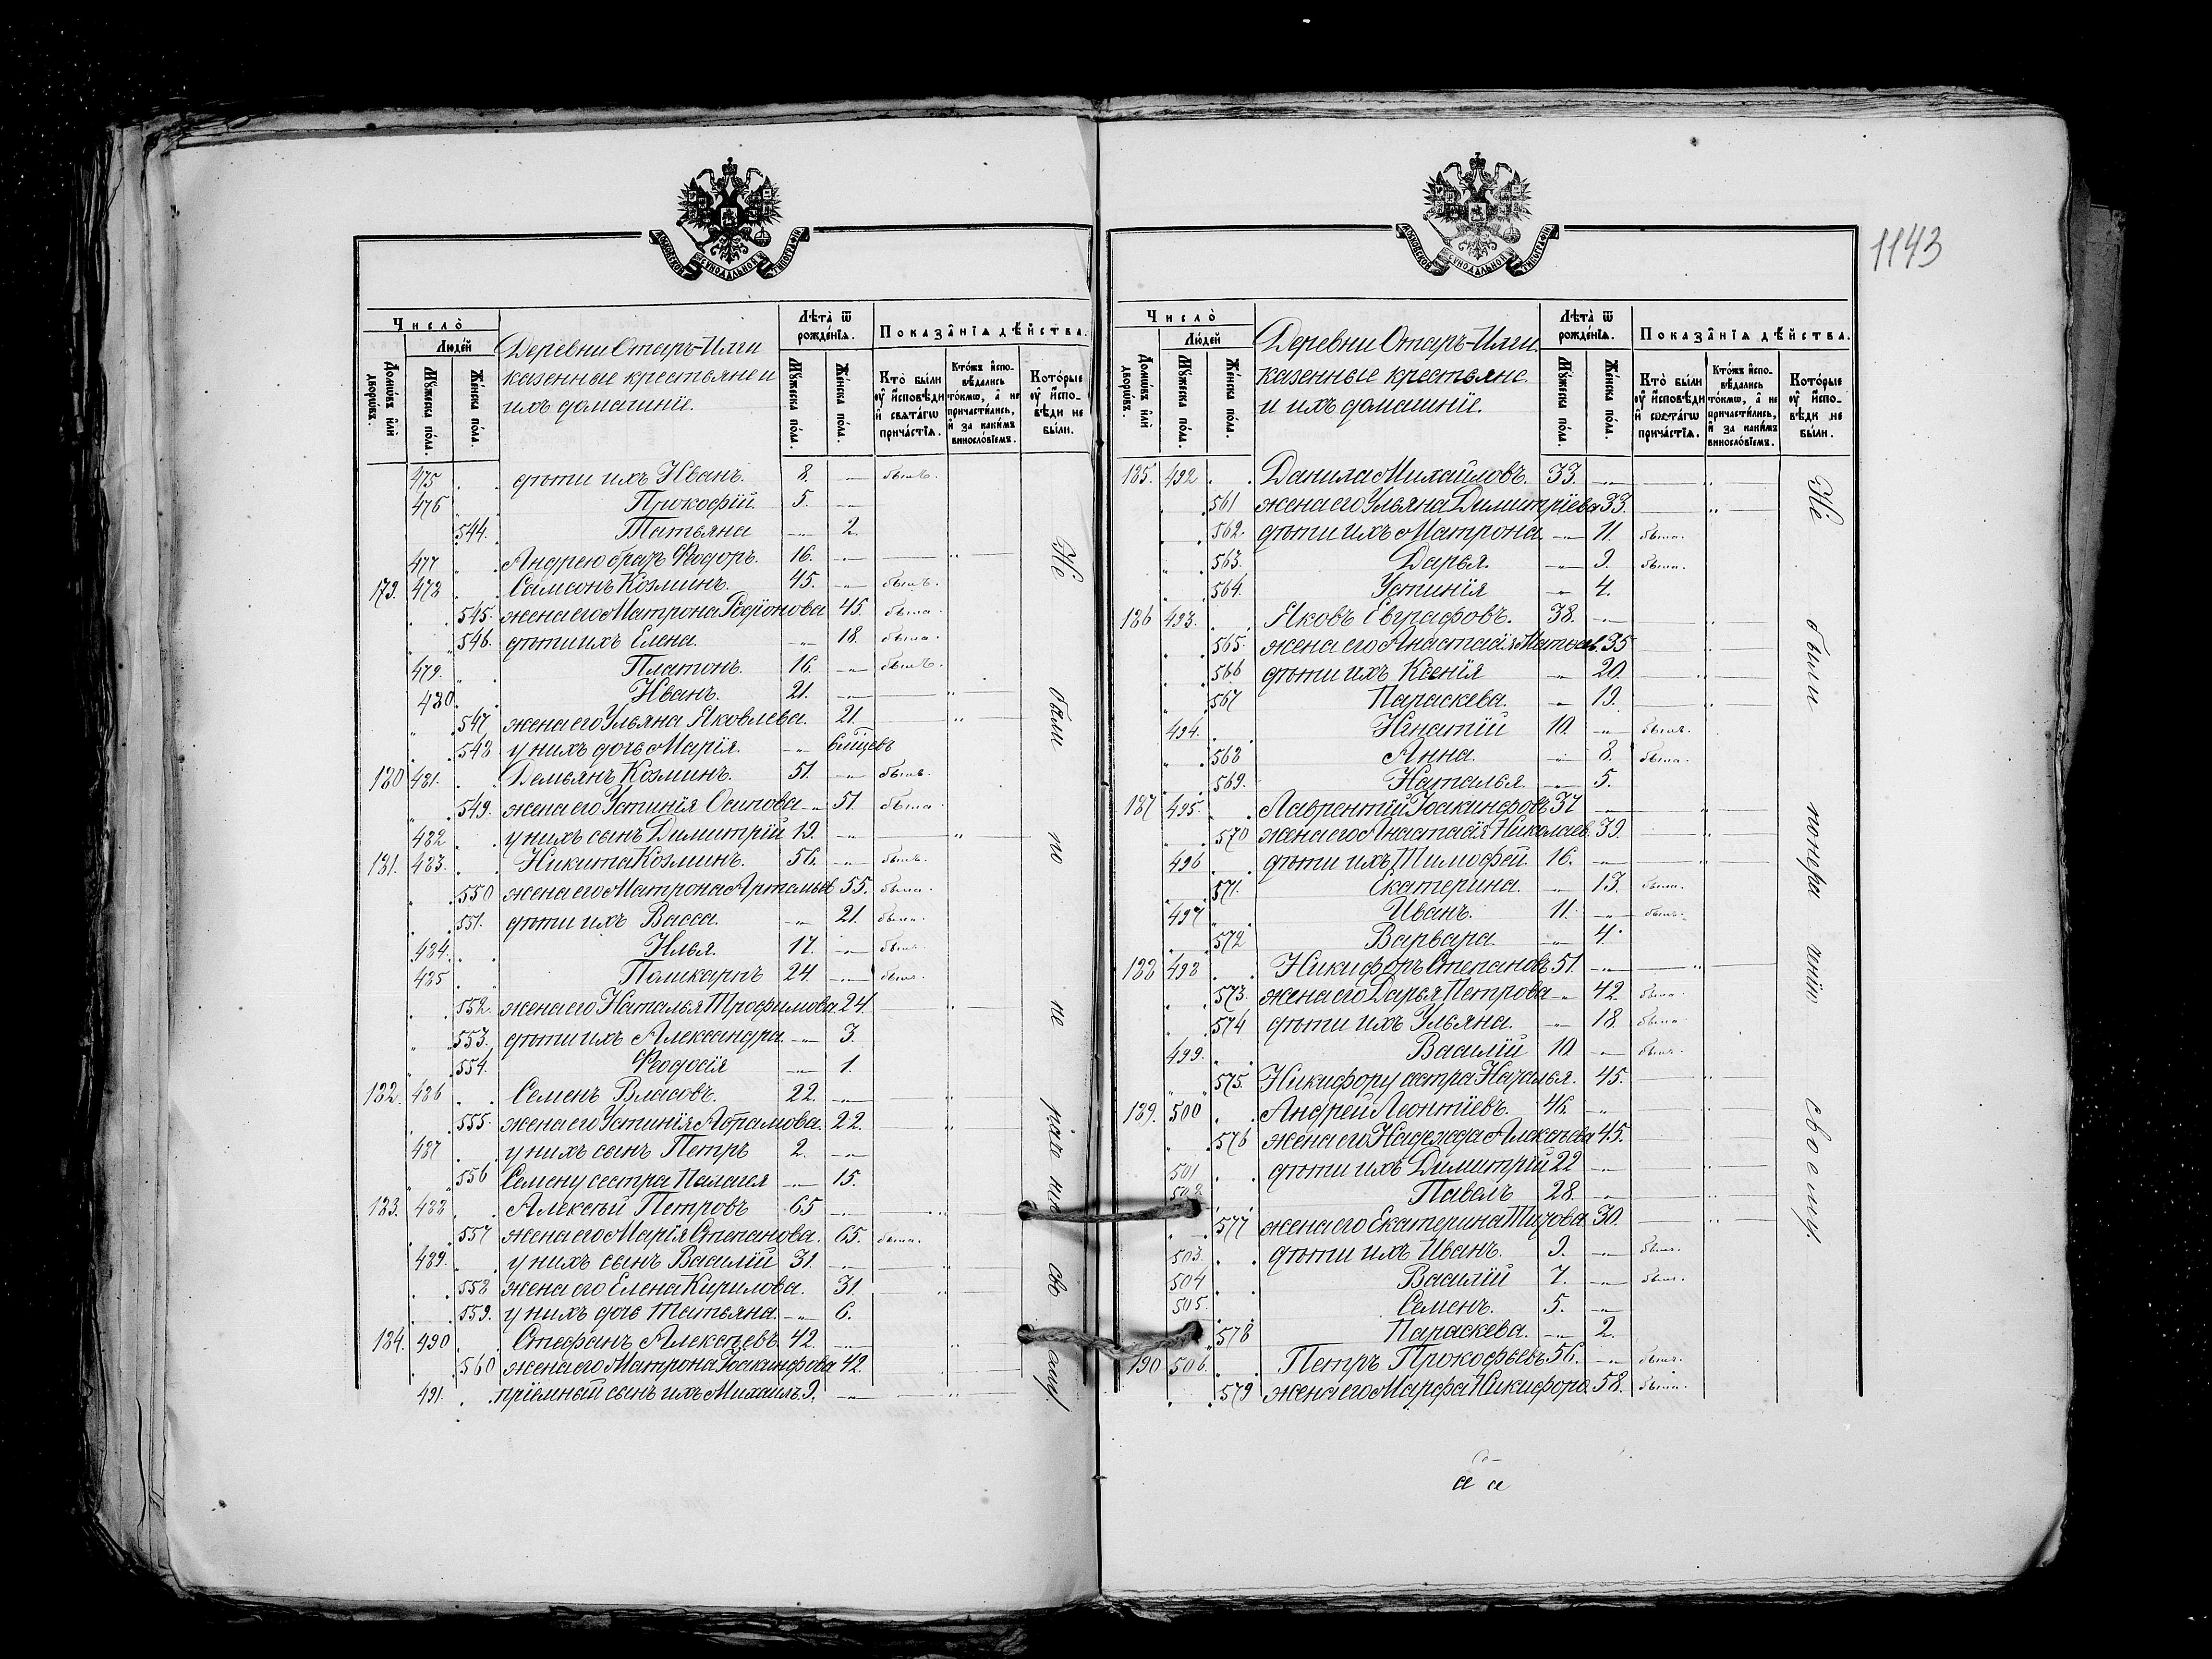 МОСКОВСКОЙ СѴНОДАЛЬНОЙ ТИПОГРАФІИ
Число̀
Люде́й
Домѡ́въ и҆лѝ дворѡ́въ.
Мꙋ́жеска по́ла.
Же́нска по́ла.
Деревни Старъ-Илги
казенные крестьяне и
ихъ домашніе.
Лѣ́та ѿ рожде́нїѧ.
Мꙋ́жеска по́ла.
Же́нска по́ла.
Показа̂нїѧ дѣ́йства.
Кто̀ бы́ли ᲂу҆ и҆сповѣ́ди и҆ свѧта́гѡ прича́стїѧ.
Кто́жъ и҆сповѣ́дались то́кмѡ, а҆ не причасти́лись, и҆ за каки́мъ винослóвїемъ.
Кото́рые ᲂу҆ и҆сповѣ́ди не бы́ли.
475 дѣти ихъ Иванъ. 8. былъ.
476 Прокофій. 5.
544. Татьяна 2.
477 Андрею братъ Ѳедоръ. 16.
179. 478 Самсонъ Козминъ. 45. былъ.
545. жена его Матрона Родіонова 45. была.
546. дѣти ихъ Елена. 18. была.
479. Платонъ. 16. былъ.
480 Иванъ. 21.
547 жена его Ульяна Яковлева. 21.
548 у нихъ дочь Марія. 6 мѣсцевъ
180 481. Демьянъ Козминъ. 51. былъ.
549. жена его Устинія Осипова 51. была.
482 у нихъ сынъ Димитрій 19.
181. 483. Никита Козминъ. 56. былъ.
550 жена его Матрона Артемьев 55. была.
551. дѣти ихъ Васса. 21. была.
484. Илья. 17. былъ.
485 Поликарпъ 24. былъ.
552. жена его Наталья Трофимова. 24.
553. дѣти ихъ Александра 3.
554. Ѳеодосія 1.
182. 486 Семенъ Власовъ. 22.
555. жена его Устинія Абрамова. 22.
487 у нихъ сынъ Петръ 2.
556 Семену сестра Палагея 15.
183. 488 Алексѣй Петровъ 65
557 жена его Марія Степанова. 65. была.
489. у нихъ сынъ Василій 31.
558 жена его Елена Кирилова. 31.
559. у нихъ дочь Татьяна. 6.
184. 490 Стефанъ Алексѣевъ. 42.
560 жена его Матрона Іоакинфова 42.
491. пріемный сынъ ихъ Михаилъ. 9.
Не были по не
1143
МОСКОВСКОЙ СѴНОДАЛЬНОЙ ТИПОГРАФІИ
Число̀
Люде́й
Домѡ́въ и҆лѝ дворѡ́въ.
Мꙋ́жеска по́ла.
Же́нска по́ла.
Деревни Старъ-Илги.
казенные крестьяне.
и ихъ домашніе.
Лѣ́та ѿ рожде́нїѧ.
Мꙋ́жеска по́ла.
Же́нска по́ла.
Показа̂нїѧ дѣ́йства.
Кто̀ бы́ли ᲂу҆ и҆сповѣ́ди и҆ свѧта́гѡ прича́стїѧ.
Кто́жъ и҆сповѣ́дались то́кмѡ, а҆ не причасти́лись, и҆ за каки́мъ винослóвїемъ.
Кото́рые ᲂу҆ и҆сповѣ́ди не бы́ли.
185. 492 Данила Михайловъ. 33.
561 жена его Ульяна Димитріева 33.
562. дѣти ихъ Матрона 11. была.
563. Дарья. 9. была.
564. Устинія 4.
186 493. Яковъ Евграфовъ. 38.
565. жена его Анастасія Матвѣев. 35
566 дѣти ихъ Ксенія 20.
567 Параскева. 19.
494. Игнатій 10. былъ.
568 Анна. 8. была.
569. Наталья. 5.
187 495. Лаврентій Іоакинфовъ 37
570 жена его Анастасія Николаев. 39.
496 дѣти ихъ Тимофей. 16.
571. Екатерина. 13. была.
497 Иванъ. 11. былъ.
572 Варвара. 4.
188 498 Никифоръ Степановъ 51.
573. жена его Дарья Петрова 42. была.
574 дѣти ихъ Ульяна. 18. была.
499. Василій 10. былъ.
575. Никифору сестра Наталья. 45.
189. 500 Андрей Леонтіевъ. 46.
576 жена его Надежда Алексѣева 45.
501 дѣти ихъ Димитрій 22
502 Павелъ 28.
577 жена его Екатерина Титова. 30.
503. дѣти ихъ Иванъ. 9. былъ.
504 Василій 7. былъ.
505. Семенъ. 5.
578 Параскева. 2.
190 506. Петръ Прокофьевъ 56. былъ.
579 жена его Марфа Никифоро. 58. была.
Не были своему.